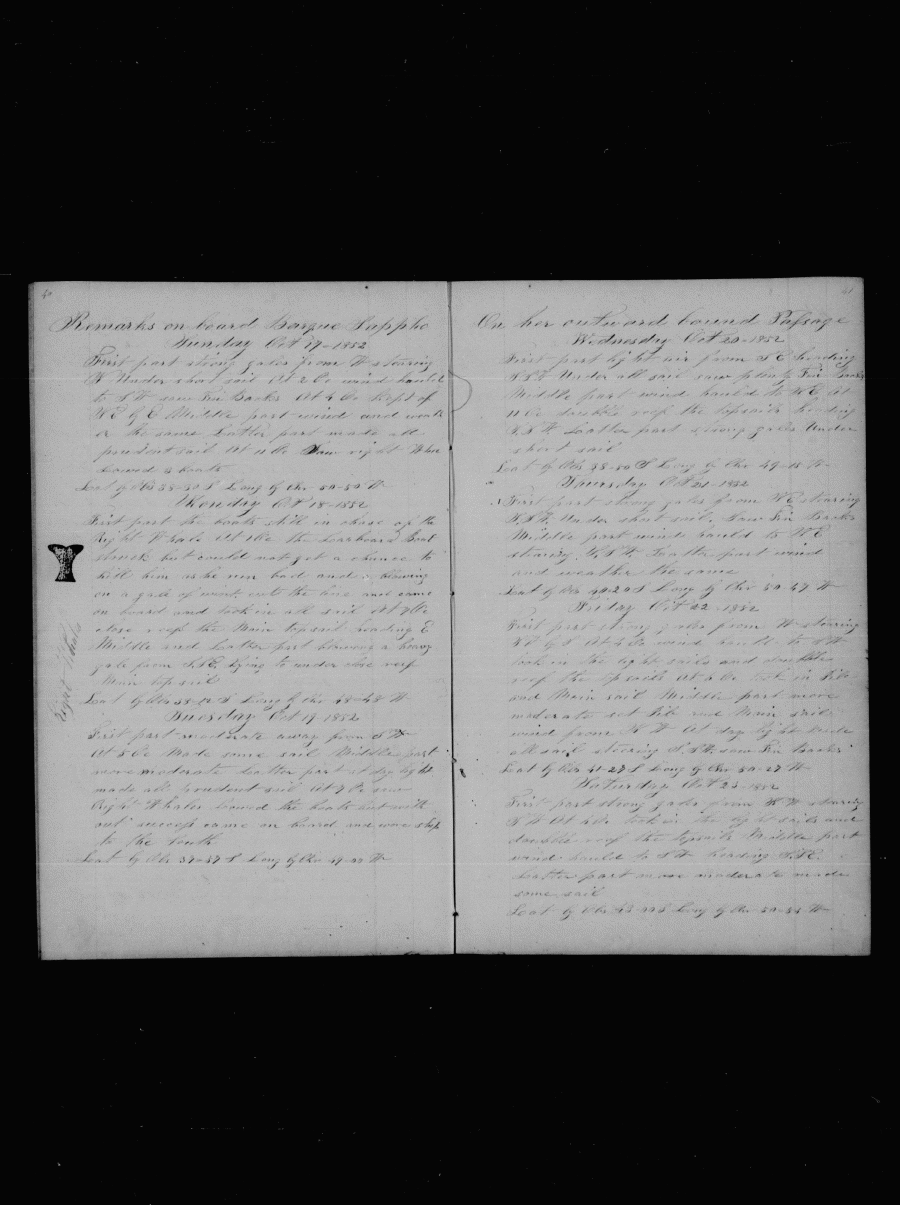 40
Remarks on board Barque Sappho
Sunday Oct 17-1852
First part strong gales from W steering
N Under short sail At 2 Oc wind hauld
to S W saw Fin Backs At 4 Oc kept of
N E by E Middle part wind and weath
er the same Latter part made all
prudent sail At 11 Oc Saw right Whale
Lowed 3 boats
Lat by Obs 38-30 S Long by Chr 50-50 W
Monday Oct 18-1852
First part the boats still in chase of the
Right Whale At 1 Oc the Larboard Boat
struck but could not get a chance to
kill him as he run bad and a blowing
on a gale of went cut the line and came
on board and took in all sail At 7 Oc
close reef the Main topsail heading E
Middle and Latter part blowing a heavy
gale from S.S.E. lying to under close reef
Main topsail
Lat by Obs 38-02 S Long by Chr 48-48 W
Right Whale
Tuesday Oct 19-1852
First part moderate away from S W
At 5 Oc Made some sail Middle part
more moderate Latter part at day light
made all prudent sail At 7 Oc saw
Right Whales lowed the boats but with
out success came on board and wore ship
to the South
Lat by Obs 37-57 S Long by Chr 49-00 W
41
On her outward bound Passage
Wednesday Oct 20-1852
First part light air from S E heading
S.S.W. Under all sail saw plenty Fin Backs
Middle part wind hauld to N E At
11 Oc double reef the topsails heading
S.S.W. Latter part strong gales Under
short sail
Lat by Obs 38-50 S Long by Chr 49-15 W
Thursday Oct 21-1852
First part strong gales from N E steering
S.S.W. Under short sail. Saw Fin Backs
Middle part wind hauld to N. E
steering S.S.W. Latter part wind
and weather the same
Lat by Obs 40-20 S Long by Chr 50-47 W
Friday Oct 22-1852
First part strong gales from W steering
S by S At 4 Oc wind hauld to S W
took in the light sails and double
reef the topsails At 5 Oc took in Jib
and Main sail Middle part more
moderate set Jib and Main sail
wind from N W At day light made
all sail steering S.S.W. saw Fin Backs
Lat by Obs 41-27 S Long by Chr 50-27 W
Saturday Oct 23-1852
First part strong gales from N W steering
S W At 6 Oc took in the light sails and
double reef the topsails Middle part
wind hauld to S W heading S.S.E.
Latter part more moderate made
some sail
Lat by Obs 43-00 S Long by Chr 50-55 W